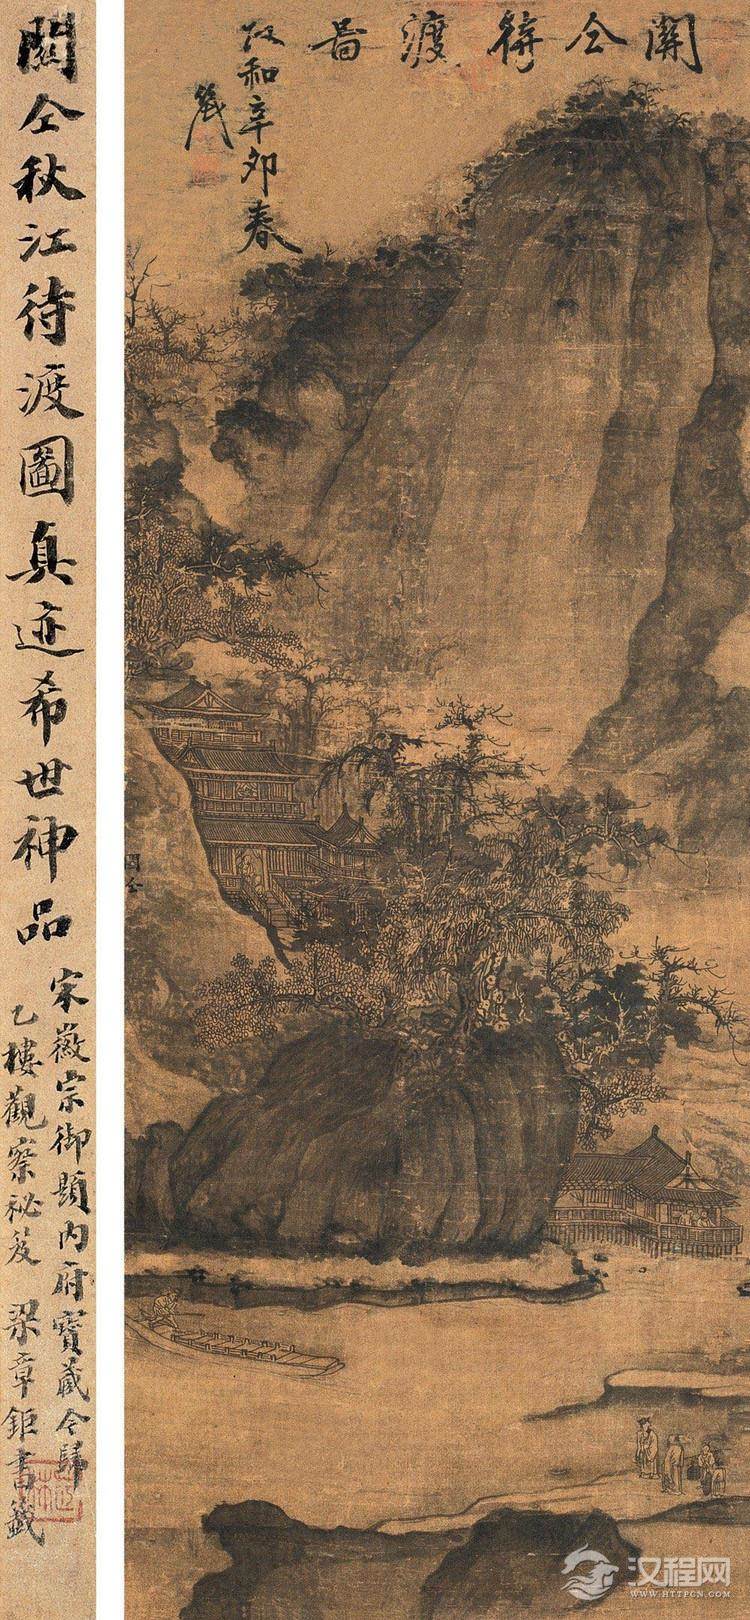 關仝秋江待渡圖真迹希世神品
宋徽宗御題内府寶藏今歸
乙樓觀察祕笈 梁章鉅書籤
關仝待渡啚
政和辛卯春
關仝
汉程网
WWW.HTTPCN.COM